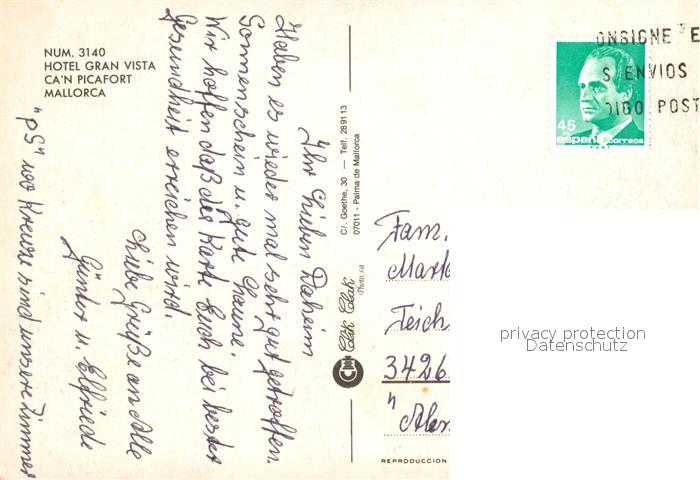 NUM. 3140
HOTEL GRAN VISTA
CA'N PICAFORT
MALLORCA
Ihr Lieben Daheim
Haben es wieder mal sehr gut getroffen.
Sonnenschein u. gute Laune.
Wir hoffen daß die Karte Euch bei bester
Gesundheit erreichen wird.
Liebe Grüße an Alle
Günter u. Elfriede
"PS" wo Kreuze sind unsere Zimmer
Clik Clak
Photo, s.a.
C/. Goethe, 30 — Telf. 289113
07011 - Palma de Mallorca
ONSIGNE E
S ENVIOS
DIGO POST
45
españa correos
Fam.
Mark
Teich
3426
REPRODUCCION
privacy protection
Datenschutz